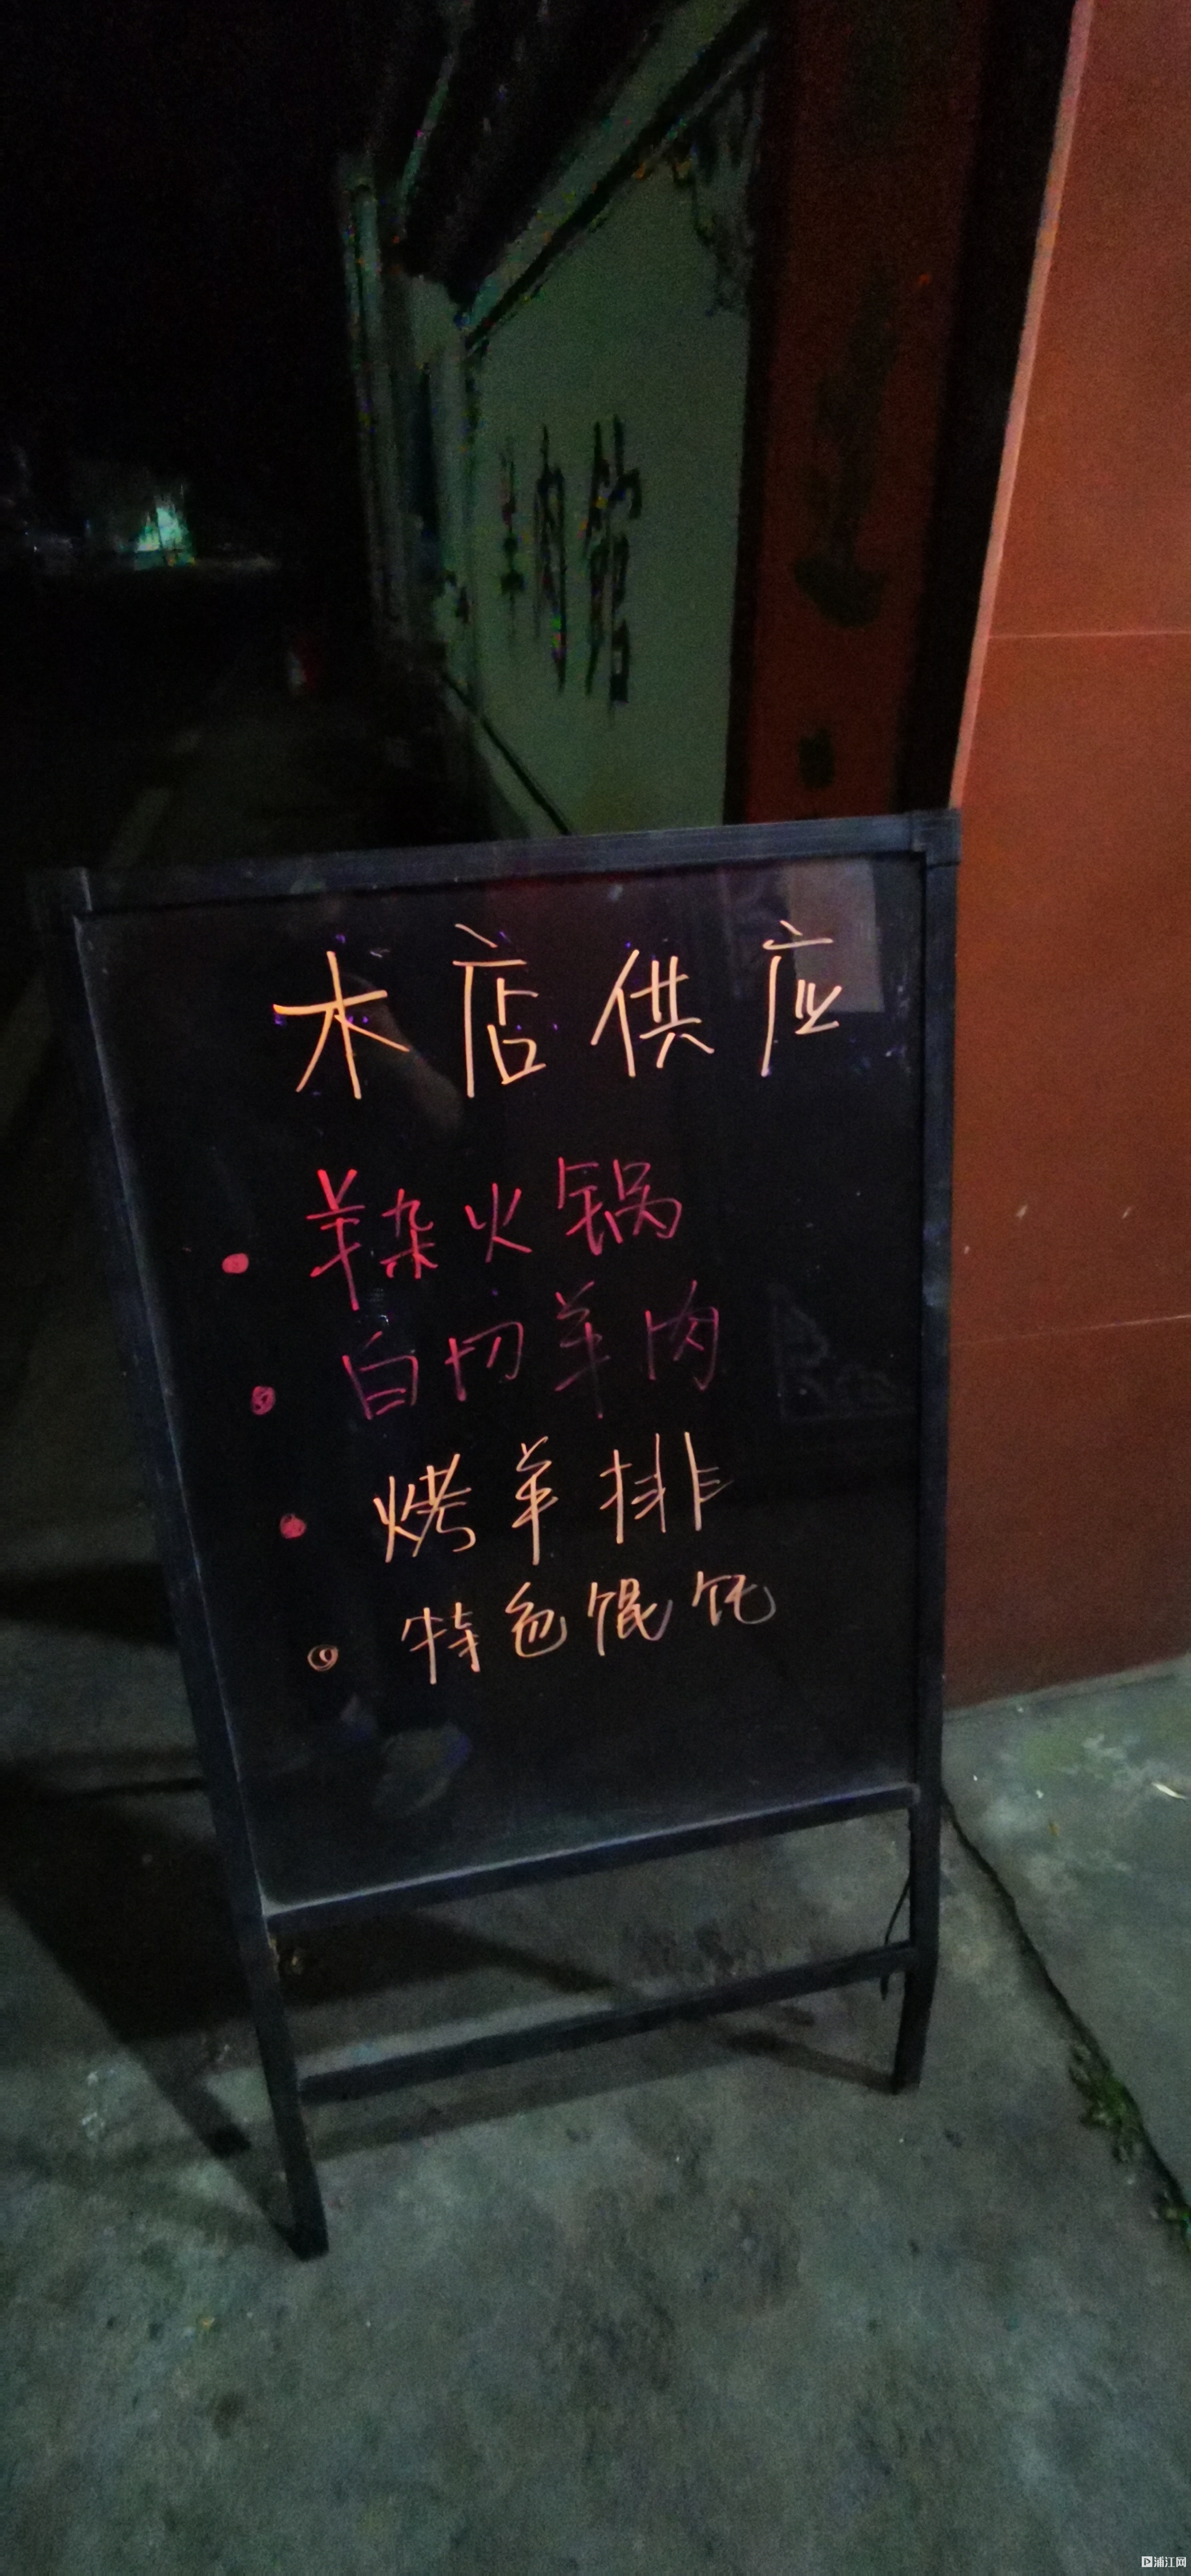 本店供应
· 羊杂火锅
· 白切羊肉
· 烤羊排
· 特色馄饨
浦江网